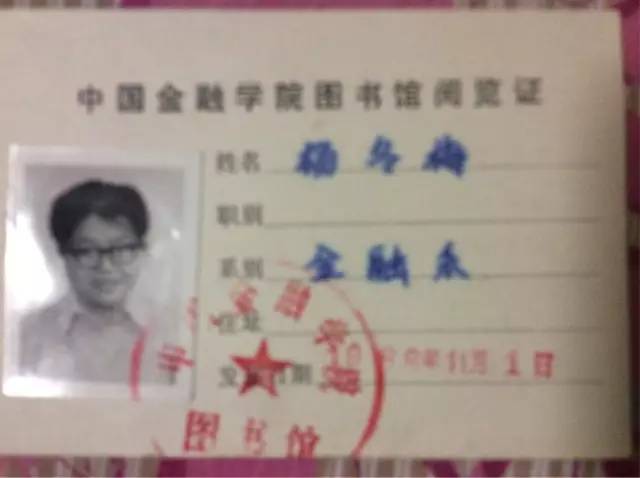 中国金融学院图书馆阅览证
姓名 杨冬梅
职别
系别 金融系
住址
发证日期 11月1日
金融学院
图书馆